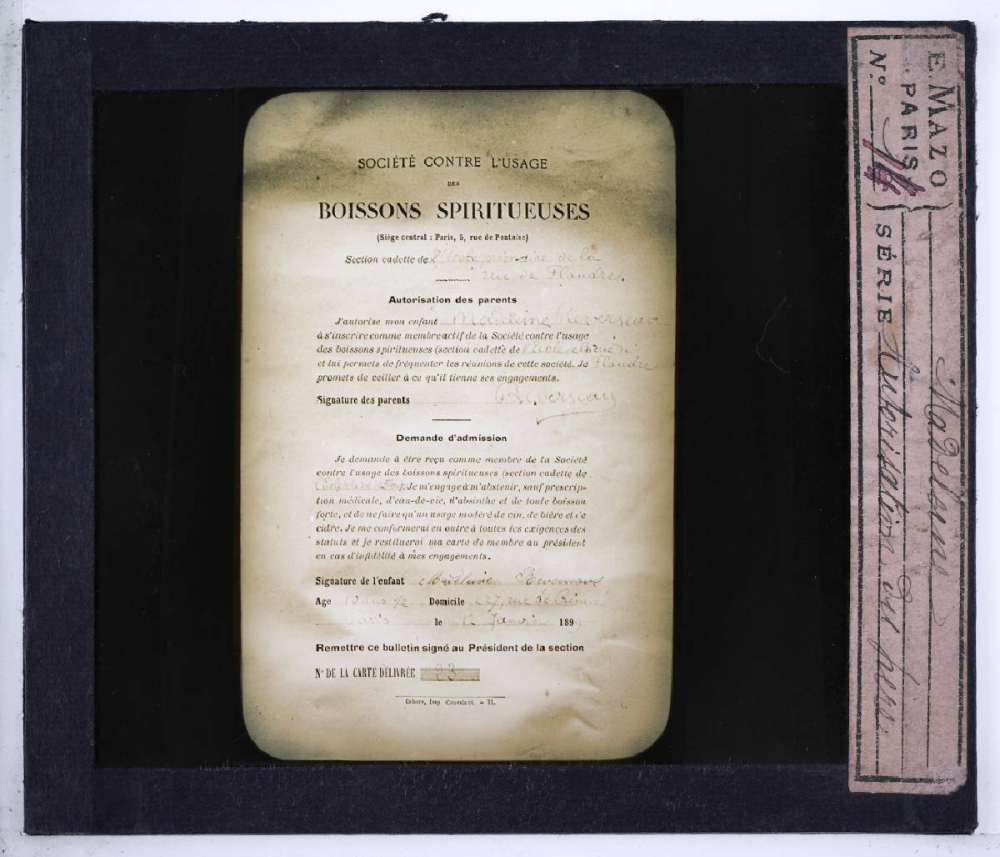 SOCIÉTÉ CONTRE L'USAGE
DES
BOISSONS SPIRITUEUSES
(Siège central : Paris, 5, rue de Pontoise)
Section cadette de l'école primaire de la
rue de Flandre.
Autorisation des parents
J'autorise mon enfant Madeleine
à s'inscrire comme membre actif de la Société contre l'usage
des boissons spiritueuses (section cadette de
et lui permets de fréquenter les réunions de cette société. Je Flandre
promets de veiller à ce qu'il tienne ses engagements.
Signature des parents
Demande d'admission
Je demande à être reçu comme membre de la Société
contre l'usage des boissons spiritueuses (section cadette de
Je m'engage à m'abstenir, sauf prescrip-
tion médicale, d'eau-de-vie, d'absinthe et de toute boisson
forte, et de ne faire qu'un usage modéré de vin, de bière et de
cidre. Je me conformerai en outre à toutes les exigences des
statuts et je restituerai ma carte de membre au président
en cas d'infidélité à mes engagements.
Signature de l'enfant
Age Domicile rue de
Paris le 12 Janvier 189
Remettre ce bulletin signé au Président de la section
N° DE LA CARTE DÉLIVRÉE 23
Cahors, Imp.
E. MAZO
PARIS
N°
SÉRIE
Madeleine
Autorisation du père